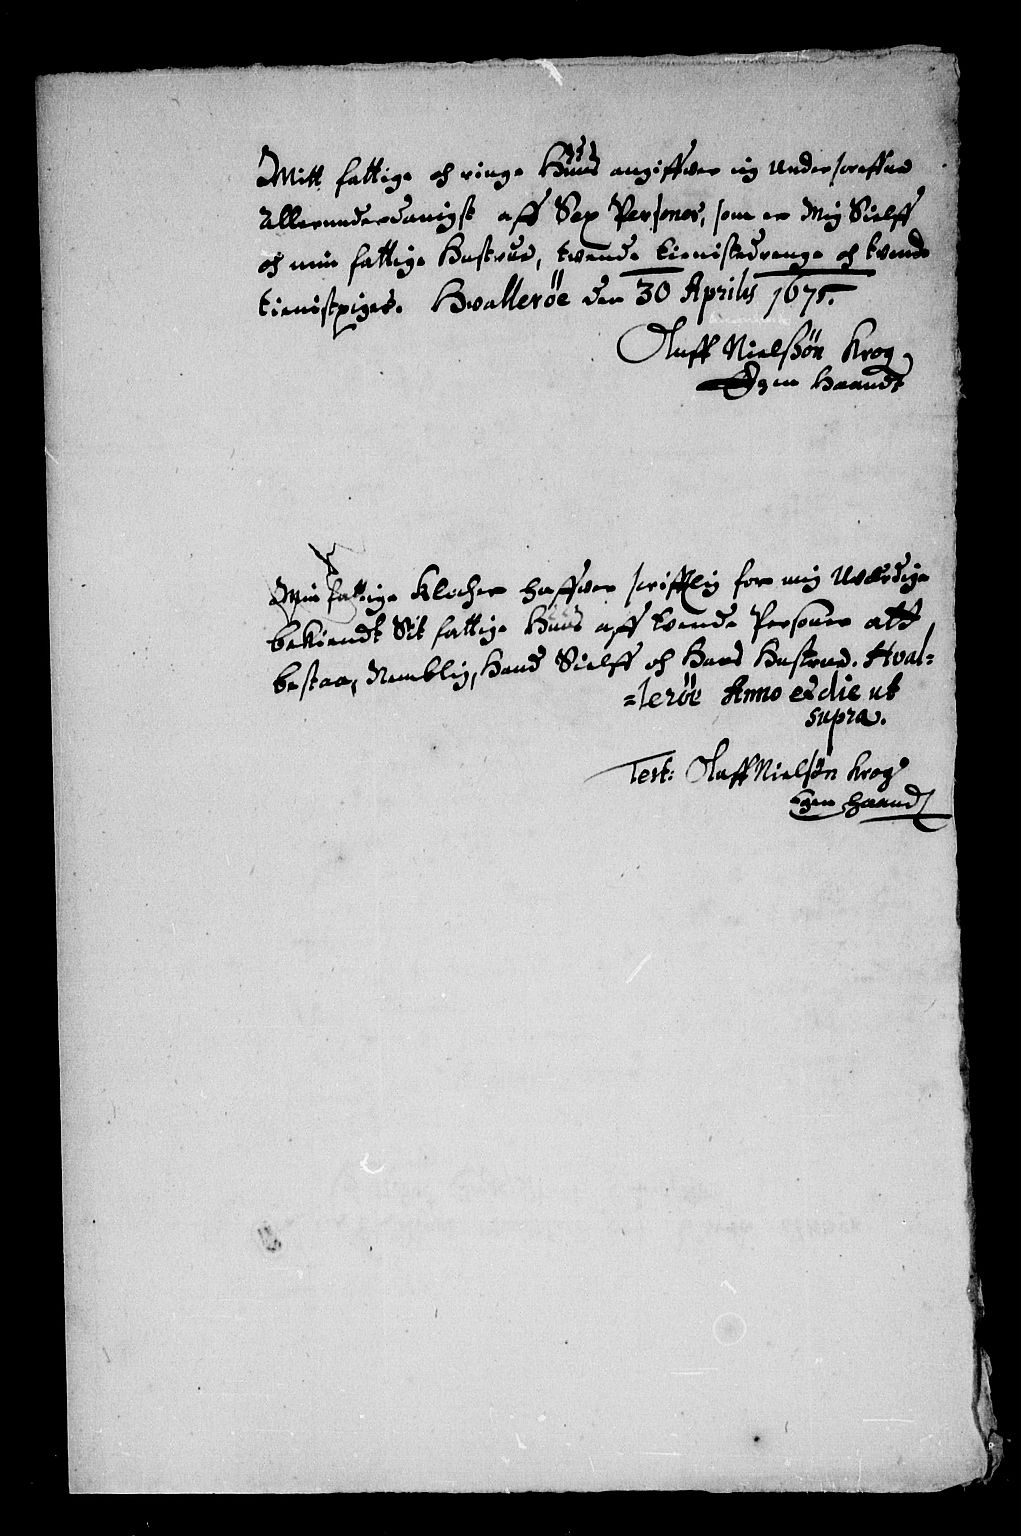 Mitt fattige och ringe Huus angiffver ieg underschreffne
Allerunderdanigst aff Sex Personer, som er Mig Sielff
och min fattige Hustrue, tvende tienistedrenge och tvende
tienistpiger. Hvallerøe den 30 Aprilis 1675.
Oluff Nielssøn Krog
Egen Haandt
Min fattige Klocher haffver schrifftlig for mig Uværdige
bekiendt Sit fattige Huus aff tvende Personer att
bestaa, Nemblig, Hand Sielff och Hans Hustrue. Hval=
=lerøe Anno et die ut
supra.
Test: Oluff Nielsøn Krog
Egen Haand